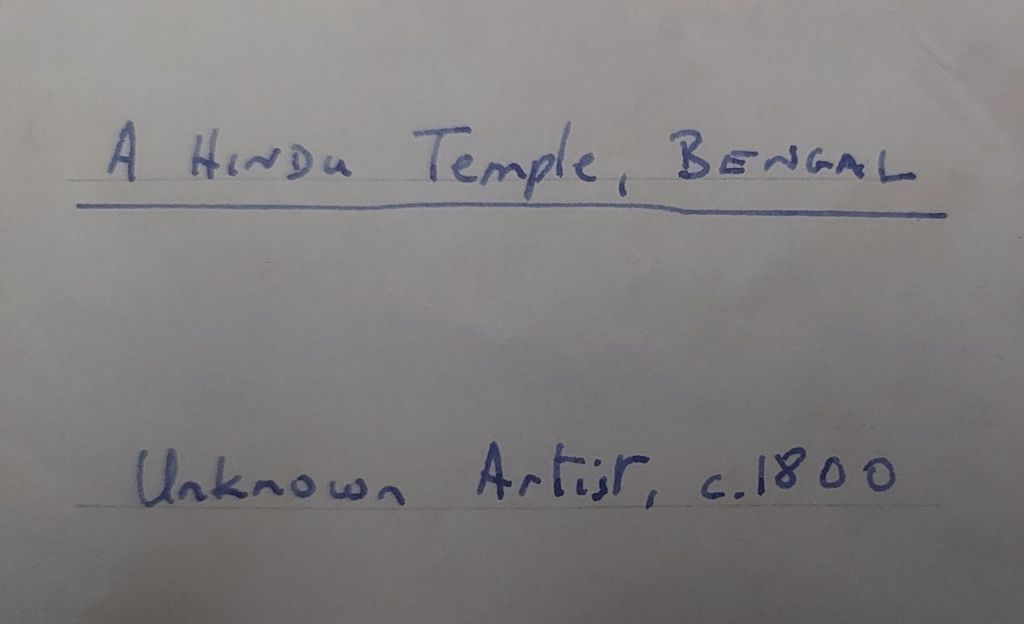 A HINDU Temple, BENGAL
Unknown Artist, c.1800